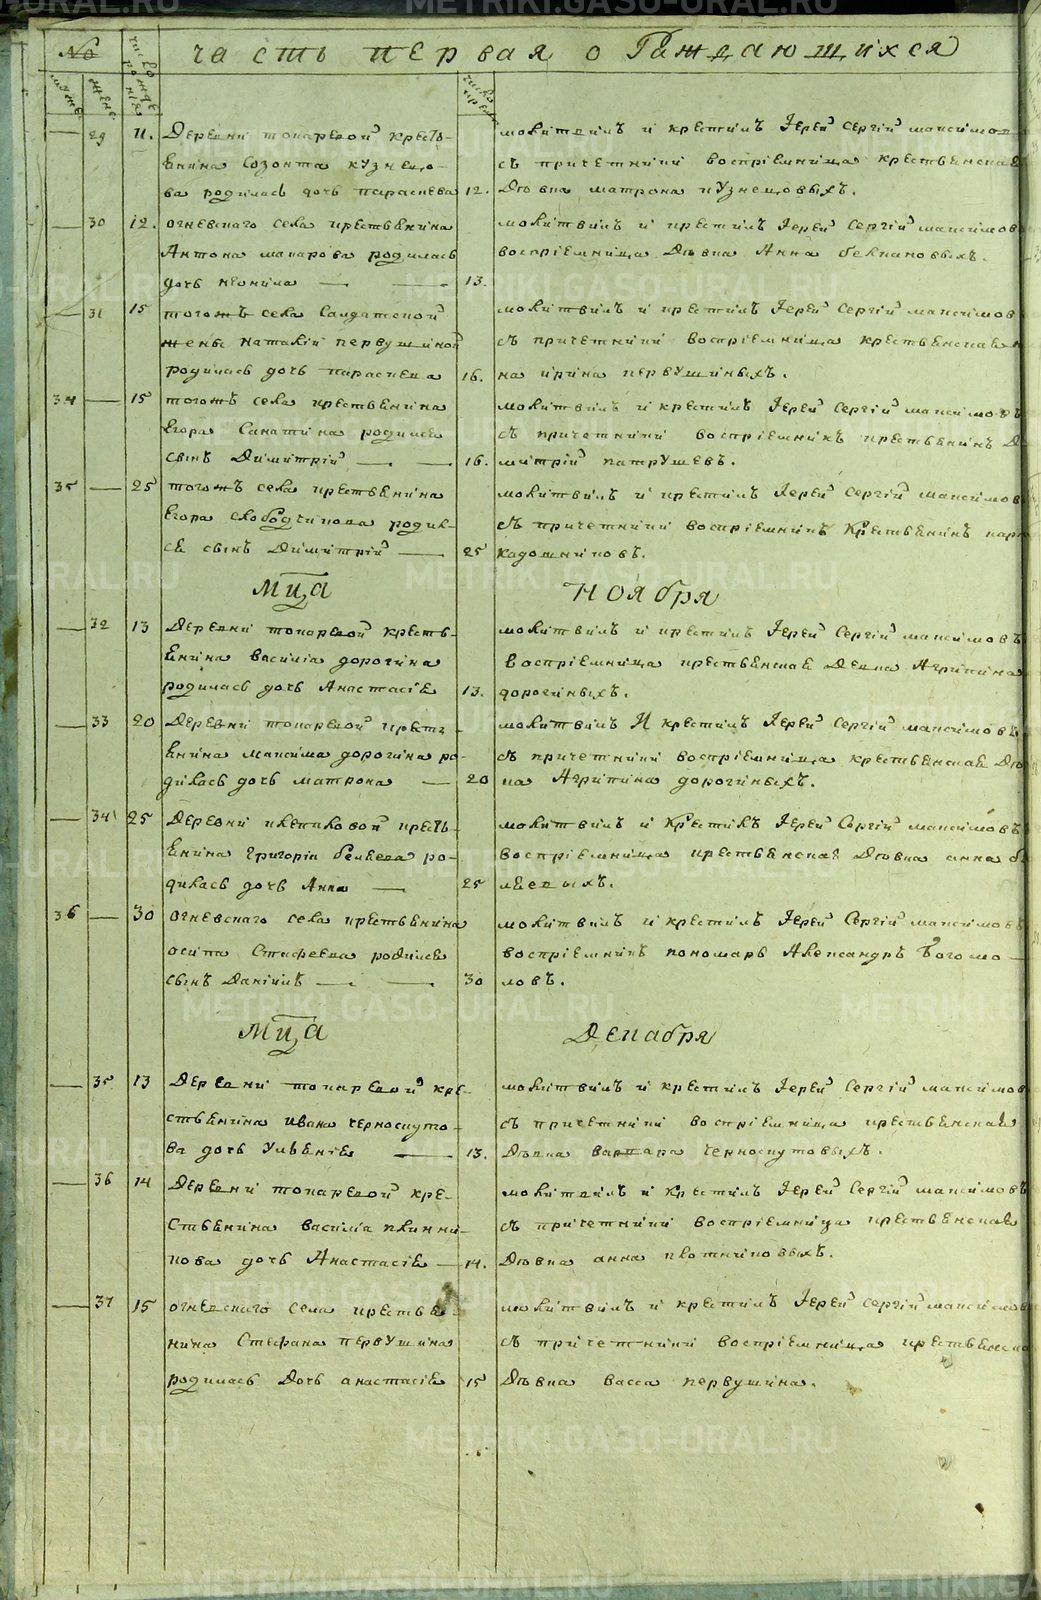 №
часть первая о Раждающихся
муже
жене
число рожденія
число крещ
29 11. Деревни токаревой кресть-
янина Созонта кузнецо-
ва родилась дочь параскева 12.
молитвилъ и крестилъ Іерей Сергій максимов
съ причетники воспріемница крестьянская
Девка матрона кузнецовыхъ.
30 12. огневскаго села крестьянина
Антона макарова родилась
дочь неонила 13.
молитвилъ и крестилъ Іерей Сергій максимов
воспріемница Девка Анна
31 15 тогожъ села Салдатской
жены наталіи первушиной
родилась дочь параскева 16.
молитвилъ и крестилъ Іерей Сергій максимов
съ причетники воспріемница крестьянская
ка ирина первушиныхъ.
34 15 тогожъ села крестьянина
Егора родился
сынъ Димитрій 16.
молитвилъ и крестилъ Іерей Сергій максимовъ
съ причетники воспріемникъ крестьянинъ Ди
митрій патрушевъ.
35 25 тогожъ села крестьянина
Егора слободчикова родил-
ся сынъ Димитрій 25
молитвилъ и крестилъ Іерей Сергій максимов
съ причетники воспріемникъ крестьянинъ карп
кадошниковъ.
Мца Ноября
32 13 Деревни токаревой кресть-
янина василіа дорогина
родилась дочь Анастасія 13.
молитвилъ и крестилъ Іерей Сергій максимовъ
воспріемница крестьянская Девка Агрипина
дорогиныхъ.
33 20 Деревни токаревой кресть-
янина максима дорогина ро-
дилась дочь матрона 20
молитвилъ И крестилъ Іерей Сергій максимовъ
съ причетники воспріемница крестьянская Дев
ка Агрипина дорогиныхъ.
34 25 Деревни клепаловой кресть-
янина григоріа беляева ро-
дилась дочь Анна 25
молитвилъ и крестилъ Іерей Сергій максимовъ
воспріемница крестьянская Девка анна бе
ляевыхъ.
36 30 огневскаго села крестьянина
осипа Стафеева родился
сынъ Даніилъ 30
молитвилъ и крестилъ Іерей Сергій максимовъ
воспріемникъ пономарь Александръ Богомо-
ловъ.
Мца Декабря
35 13 Деревни токаревой кре-
стьянина ивана черноскуто-
ва дочь Улвенія 13.
молитвилъ и крестилъ Іерей Сергій максимов
съ причетники воспріемница крестьянская
Девка варвара черноскутовыхъ.
36 14 Деревни токаревой кре-
стьянина василіа плотни-
кова дочь Анастасія 14.
молитвилъ и крестилъ Іерей Сергій максимовъ
съ причетники воспріемница крестьянская
Девка анна плотниковыхъ.
37 15 огневскаго села крестья-
нина Стефана первушина
родилась Дочь анастасія 15
молитвилъ и крестилъ Іерей сергій максимов
съ причетники воспріемница крестьянска
Девка васса первушина.
METRIKI.GASO-URAL.RU